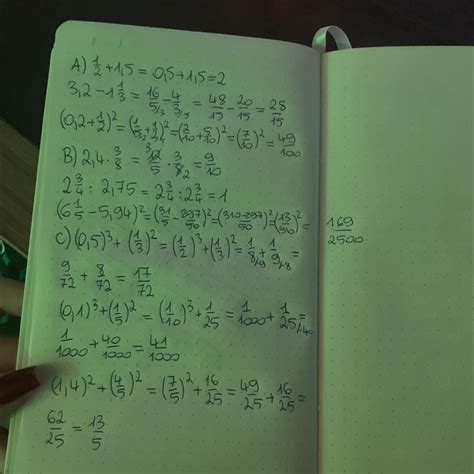 A) 1/2 + 1,5 = 0,5 + 1,5 = 2
3,2 - 1 1/3 = 16/5/3 - 4/3/5 = 48/15 - 20/15 = 28/15
(0,2 + 1/2)² = (1/5/2 + 1/2/5)² = (2/10 + 5/10)² = (7/10)² = 49/100
B) 2,4 · 3/8 = 12/5 · 3/8 = 9/10
2 3/4 : 2,75 = 2 3/4 : 2 3/4 = 1
(6 1/5 - 5,94)² = (31/5 - 297/50)² = (310-297/50)² = (13/50)² = 169/2500
C) (0,5)³ + (1/3)² = (1/2)³ + (1/3)² = 1/8/9 + 1/9/8 =
9/72 + 8/72 = 17/72
(0,1)³ + (1/5)² = (1/10)³ + 1/25 = 1/1000 + 1/25/40 =
1/1000 + 40/1000 = 41/1000
(1,4)² + (4/5)² = (7/5)² + 16/25 = 49/25 + 16/25 =
62/25 = 13/5